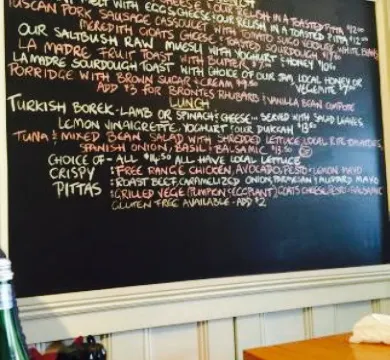 MELT WITH EGGS CHEESE & OUR RELISH IN A TOASTED PITTA $12.00
TUSCAN PORK SAUSAGE CASSOULET WITH TOMATO, RISCO VERDURE, WHITE BEANS
MEREDITH GOATS CHEESE & TOASTED SOURDOUGH
OUR SALTBUSH RAW MUESLI WITH YOGHURT & HONEY $10
LA MADRE FRUIT TOAST WITH BUTTER
LA MADRE SOURDOUGH TOAST WITH CHOICE OF OUR JAM, LOCAL HONEY OR VEGEMITE
PORRIDGE WITH BROWN SUGAR & CREAM
ADD $3 FOR BRONTES RHUBARB & VANILLA BEAN COMPOTE
LUNCH
TURKISH BOREK - LAMB OR SPINACH & CHEESE... SERVED WITH SALAD LEAVES
LEMON VINAIGRETTE YOGHURT & OUR DUKKAH $13.50
TUNA & MIXED BEAN SALAD WITH SHREDDED LETTUCE, LOCAL RIPE TOMATOES,
SPANISH ONION, BASIL & BALSAMIC $13.50
CHOICE OF - ALL $14.50 ALL HAVE LOCAL LETTUCE
CRISPY : FREE RANGE CHICKEN, AVOCADO, PESTO & LEMON MAYO
PITTAS : ROAST BEEF, CARAMELIZED ONION, PARMESAN & MUSTARD MAYO
: GRILLED VEGE (PUMPKIN & EGGPLANT), GOATS CHEESE, PESTO & BALSAMIC
GLUTEN FREE AVAILABLE - ADD $2